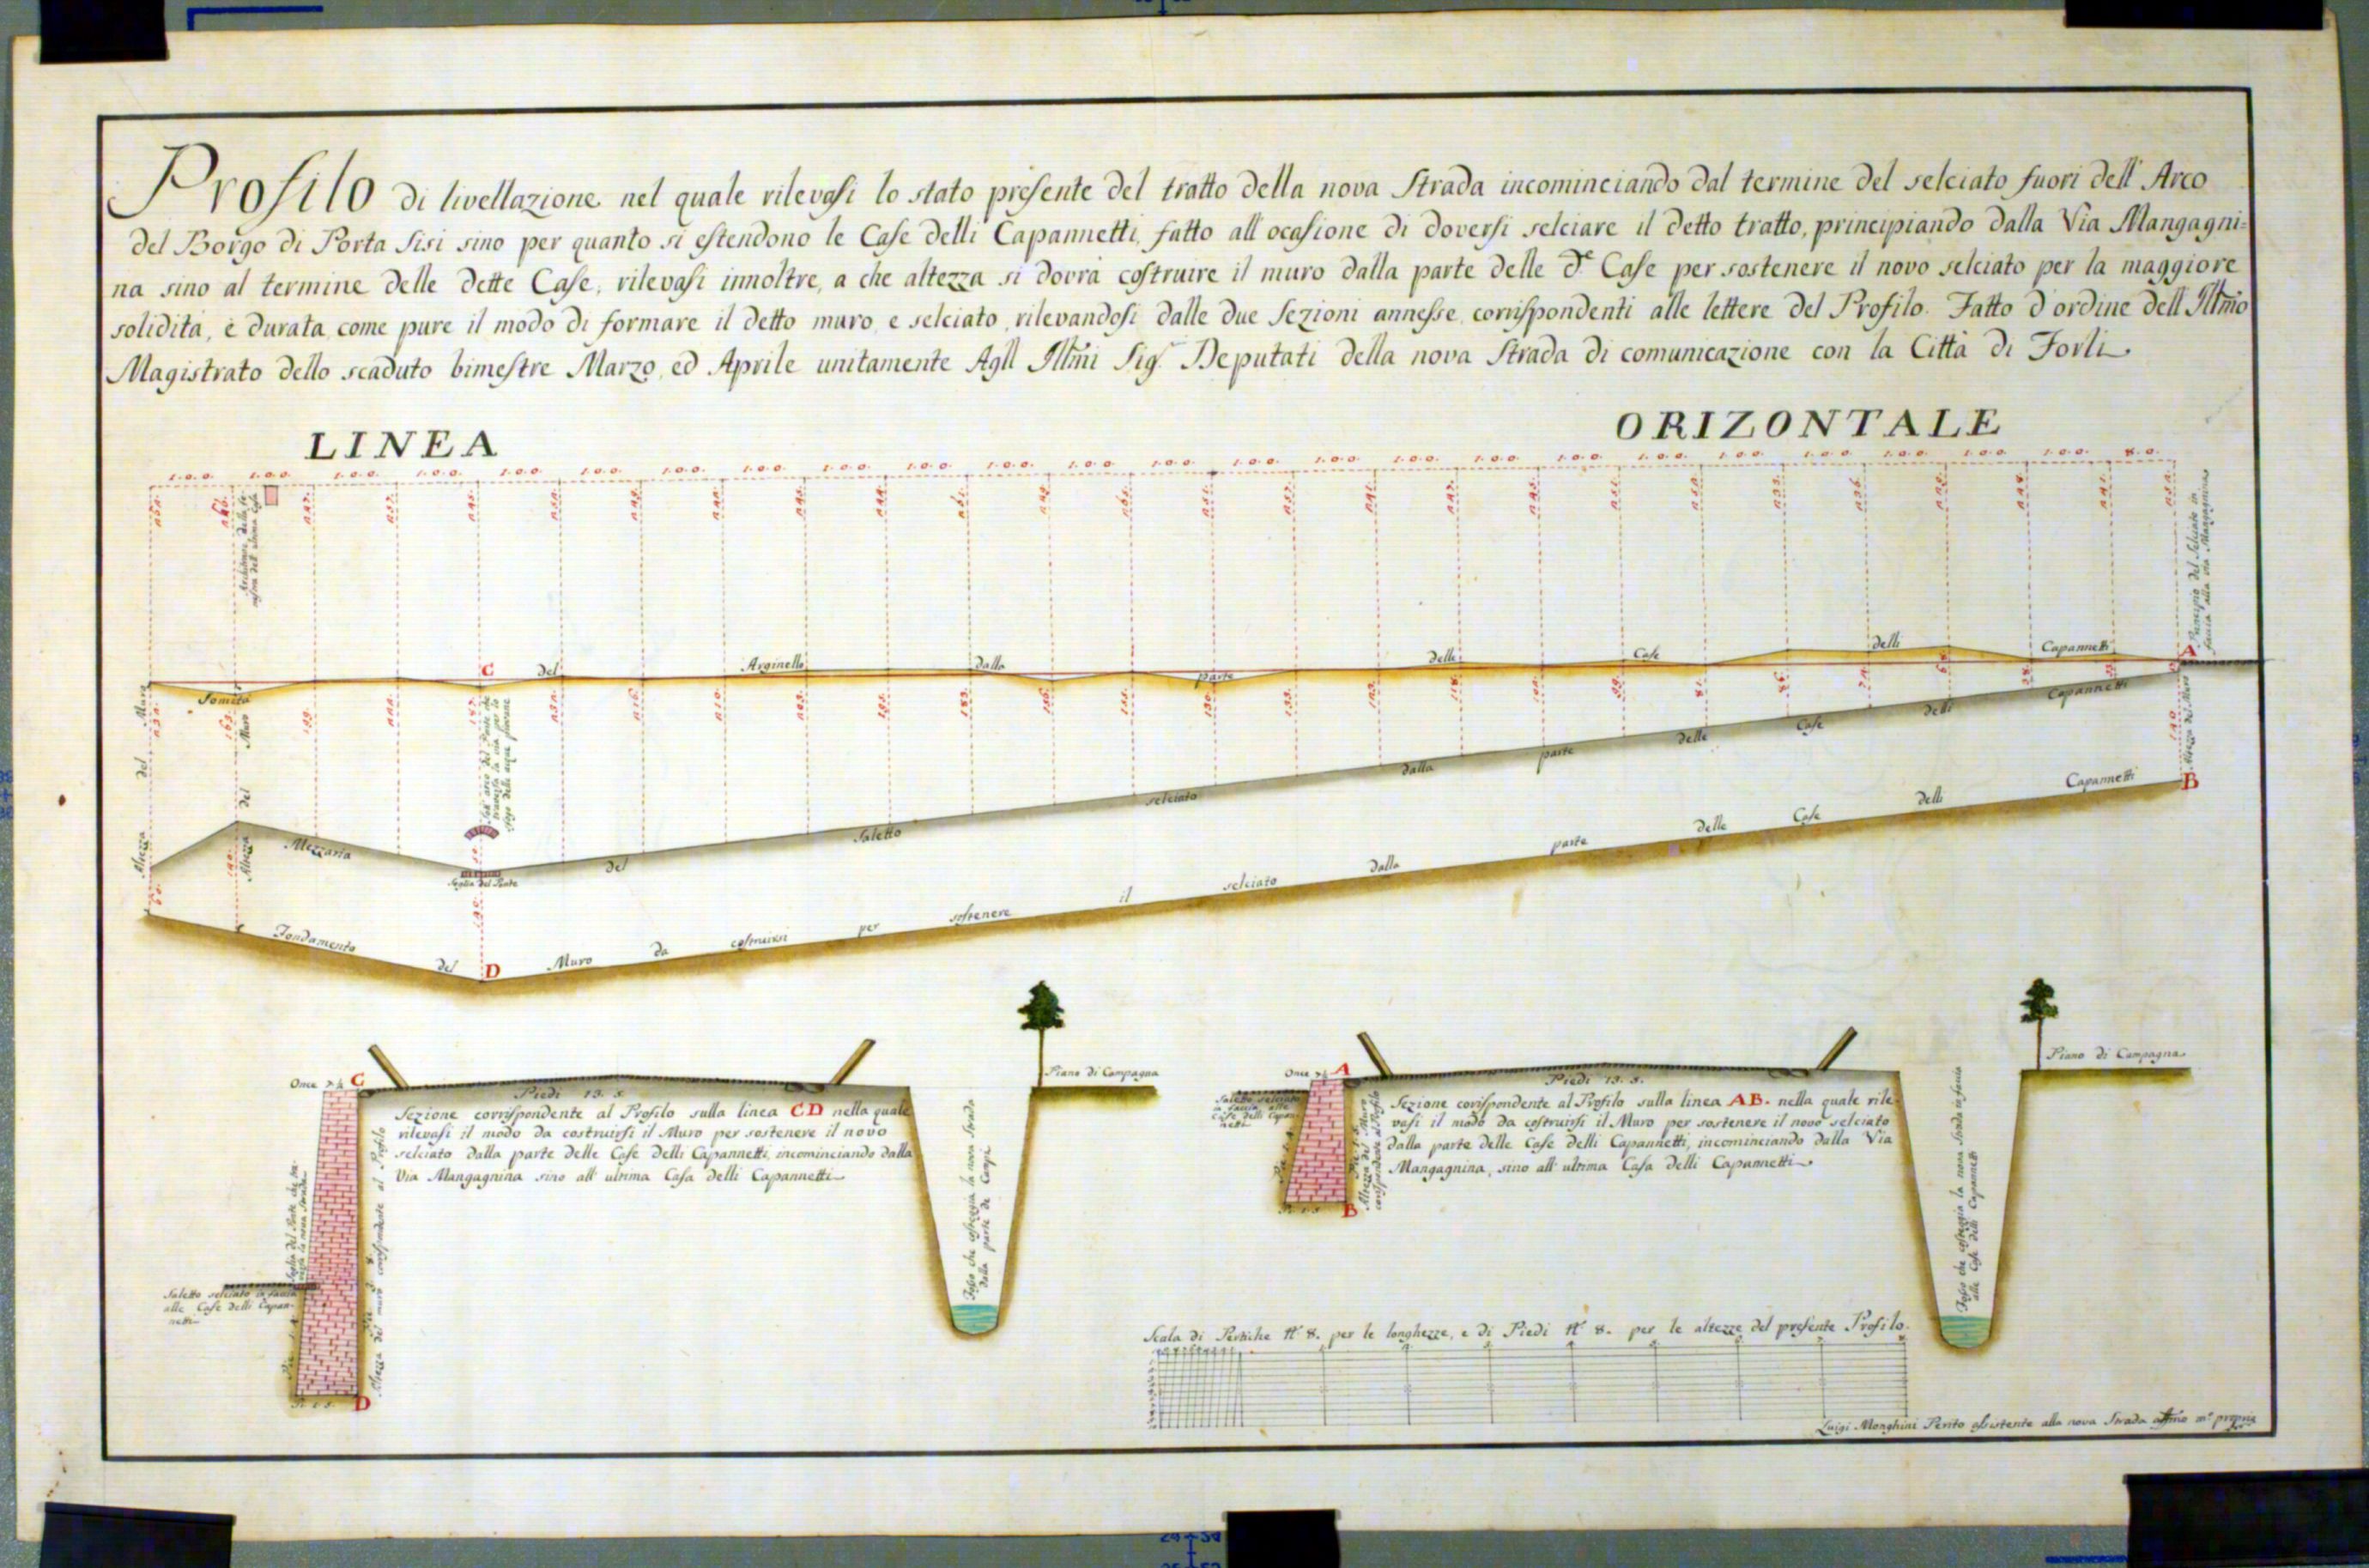 Profilo di livellazione nel quale rilevasi lo stato presente del tratto della nova Strada incominciando dal termine del selciato fuori dell' Arco
del Borgo di Porta Sisi sino per quanto si estendono le Case delli Capannetti, fatto all' ocasione di doversi selciare il detto tratto, principiando dalla Via Mangagni=
na sino al termine delle dette Case, rilevasi innoltre, a che altezza si dovrà costruire il muro dalla parte delle de Case per sostenere il novo selciato per la maggiore
solidità, e durata, come pure il modo di formare il detto muro, e selciato, rilevandosi dalle due Sezioni annesse, corrispondenti alle lettere del Profilo. Fatto d'ordine dell' Illmo
Magistrato dello scaduto bimestre Marzo, ed Aprile unitamente Agll Illmi Sig.i Deputati della nova Strada di comunicazione con la Città di Forlì
LINEA ORIZONTALE
1.0.0. 1.0.0. 1.0.0. 1.0.0. 1.0.0. 1.0.0. 1.0.0. 1.0.0. 1.0.0. 1.0.0. 1.0.0. 1.0.0. 1.0.0. 1.0.0. 1.0.0. 1.0.0. 1.0.0. 1.0.0. 1.0.0. 1.0.0. 1.0.0. 1.0.0. 1.0.0. 1.0.0. 8.0.
Principio del Selciato in
faccia alla via Mangagnina
Somità del Arginello dalla parte delle Case delli Capannetti
C
A
Altezza del Muro
Altezza del Muro
Altezza del Muro
Soglia del Ponte
Mezzaria del Saletto selciato dalla parte delle Case delli Capannetti
B
Fondamento del Muro da costruirsi per sostenere il selciato dalla parte delle Case delli Capannetti
D
Once 7½ C
Piedi 13. 5.
Piano di Campagna
Sezione corrispondente al Profilo sulla linea CD nella quale
rilevasi il modo da costruirsi il Muro per sostenere il novo
selciato dalla parte delle Case delli Capannetti, incominciando dalla
Via Mangagnina sino all' ultima Casa delli Capannetti
Fosso che costeggia la nova Strada
dalla parte de Campi
Saletto selciato in faccia
alle Case delli Capan-
netti
Altezza del muro corrispondente al Profilo
D
Once 7½ A
Piedi 13. 5.
Piano di Campagna
Saletto selciato
in faccia alle
Case delli Capan-
netti
Altezza del Muro
corrispondente al Profilo
B
Sezione corispondente al Profilo sulla linea AB. nella quale rile-
vasi il modo da costruirsi il Muro per sostenere il novo selciato
dalla parte delle Case delli Capannetti, incominciando dalla Via
Mangagnina, sino all' ultima Casa delli Capannetti
Fosso che costeggia la nova Strada in faccia
alle Case delli Capannetti
Scala di Pertiche N.° 8. per le longhezze, e di Piedi N.° 8. per le altezze del presente Profilo.
Luigi Monghini Perito assistente alla nova Strada affmo mo propria